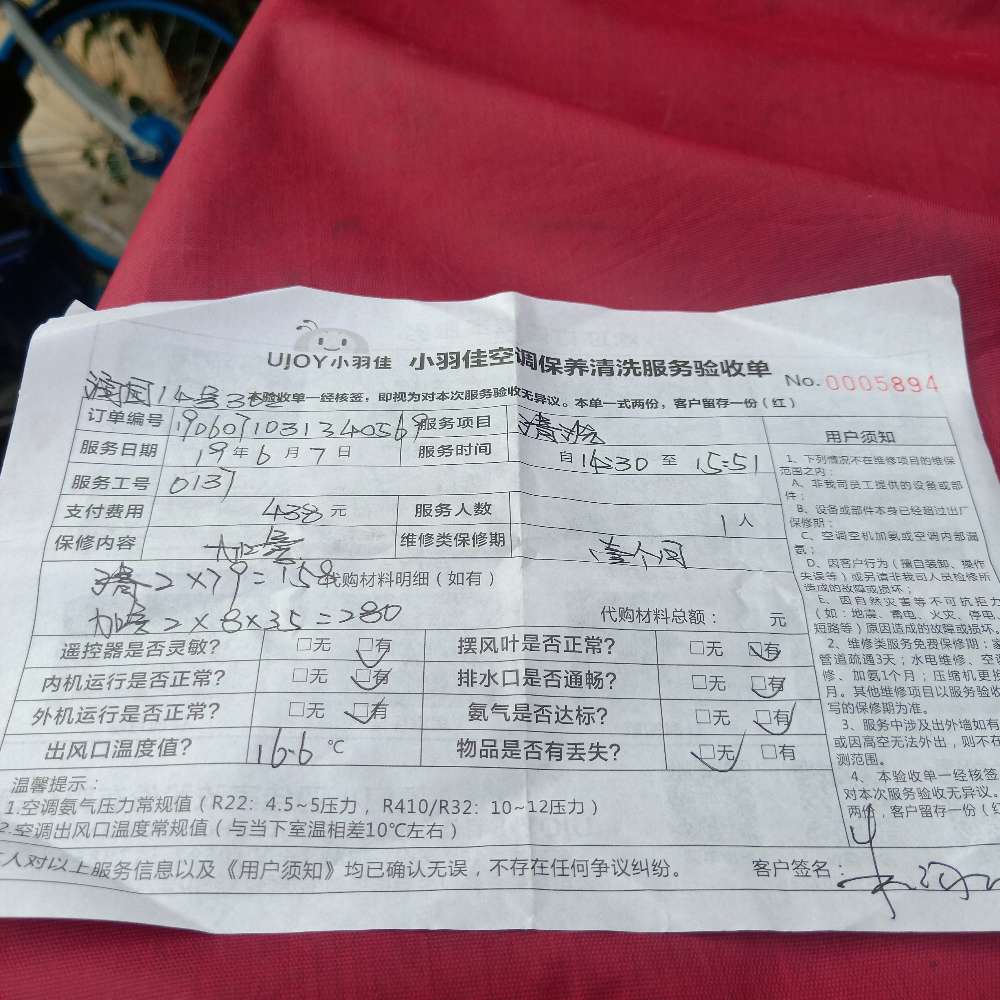 UJOY小羽佳 小羽佳空调保养清洗服务验收单 No. 0005894
14号302 本验收单一经核签，即视为对本次服务验收无异议。本单一式两份，客户留存一份（红）
订单编号 190607103134056 服务项目 清洗
服务日期 19年6月7日 服务时间 自14:30至15:51
服务工号 0137
支付费用 438元 服务人数 1人
保修内容 加氨 维修类保修期 壹个月
清2×79=158 代购材料明细（如有）
加氨2×8×35=280 代购材料总额： 元
遥控器是否灵敏？ □无 □有 摆风叶是否正常？ □无 □有
内机运行是否正常？ □无 □有 排水口是否通畅？ □无 □有
外机运行是否正常？ □无 □有 氨气是否达标？ □无 □有
出风口温度值？ 16.6 ℃ 物品是否有丢失？ □无 □有
温馨提示：
1.空调氨气压力常规值（R22：4.5~5压力，R410/R32：10~12压力）
2.空调出风口温度常规值（与当下室温相差10℃左右）
人对以上服务信息以及《用户须知》均已确认无误，不存在任何争议纠纷。 客户签名：
用户须知
1、下列情况不在维修项目的维保
范围之内：
A、非我司员工提供的设备或部
件；
B、设备或部件本身已经超过出厂
保修期；
C、空调空机加氨或空调内部漏
氨；
D、因客户行为（擅自装卸、操作
失误等）或另请非我司人员检修所
造成的故障或损坏；
E、因自然灾害等不可抗拒力
（如：地震、雷电、火灾、停电、
短路等）原因造成的故障或损坏。
2、维修类服务免费保修期：
管道疏通3天；水电维修、空
修、加氨1个月；压缩机更换
月。其他维修项目以服务验收
写的保修期为准。
3、服务中涉及出外墙如有
或因高空无法外出，则不在
测范围。
4、本验收单一经核签
对本次服务验收无异议。
两份，客户留存一份（红